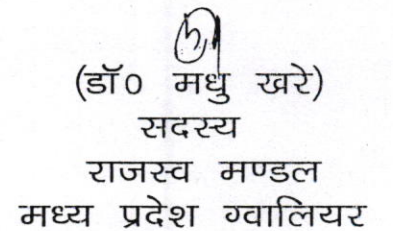 (डॉ0 मधु खरे)
सदस्य
राजस्व मण्डल
मध्य प्रदेश ग्वालियर